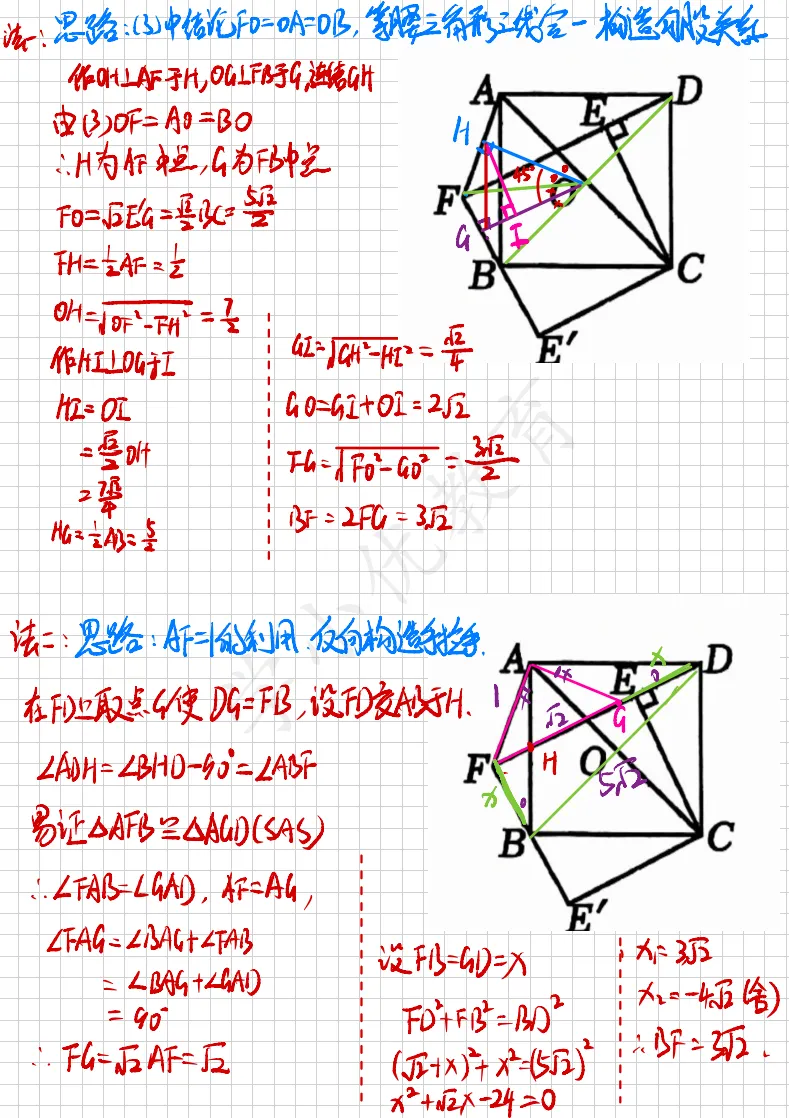 法一：思路：(3)中结论FO=OA=OB，等腰三角形三线合一构造勾股关系
作OH⊥AF于H，OG⊥FB于G，连结GH
由(3)OF=AO=BO
∴H为AF中点，G为FB中点
FO=√2E'G=√2/2BC=5√2/2
FH=1/2AF=1/2
OH=√(OF²-FH²)=7/2
作HI⊥OG于I
HI=OI
=√2/2OH
=7√2/4
HG=1/2AB=5/2
GI=√(GH²-HI²)=√2/4
GO=GI+OI=2√2
FG=√(FO²-GO²)=3√2/2
BF=2FG=3√2
A
E
D
H
45°
F
O
G
I
B
C
E'
学小优教育
法二：思路：AF=1的利用，反向构造手拉手.
在FD上取点G使DG=FB，设FD交AB于H.
∠ADH=∠BHD-90°=∠ABF
易证△AFB≌△AGD(SAS)
∴∠FAB=∠GAD，AF=AG，
∠FAG=∠BAG+∠FAB
=∠BAG+∠GAD
=90°
∴FG=√2AF=√2
设FB=GD=x
FD²+FB²=BD²
(√2+x)²+x²=(5√2)²
x²+√2x-24=0
x₁=3√2
x₂=-4√2(舍)
∴BF=3√2.
A
x
D
E
1
√2
G
F
H
O
5√2
x
B
C
E'